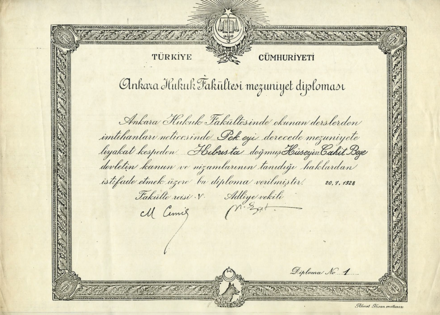 TÜRKİYE CÜMHURİYETİ
Ankara Hukuk Fakültesi mezuniyet diploması
Ankara Hukuk Fakültesinde okunan derslerden
imtihanları neticesinde Pek eyi derecede mezuniyete
liyakat kespeden Kıbrısta doğmuş Hüseyin Cahit Beye
devletin kanun ve nizamlarının tanıdığı haklardan
istifade etmek üzere bu diploma verilmiştir
Fakülte reisi V Adliye vekili
Diploma No 1